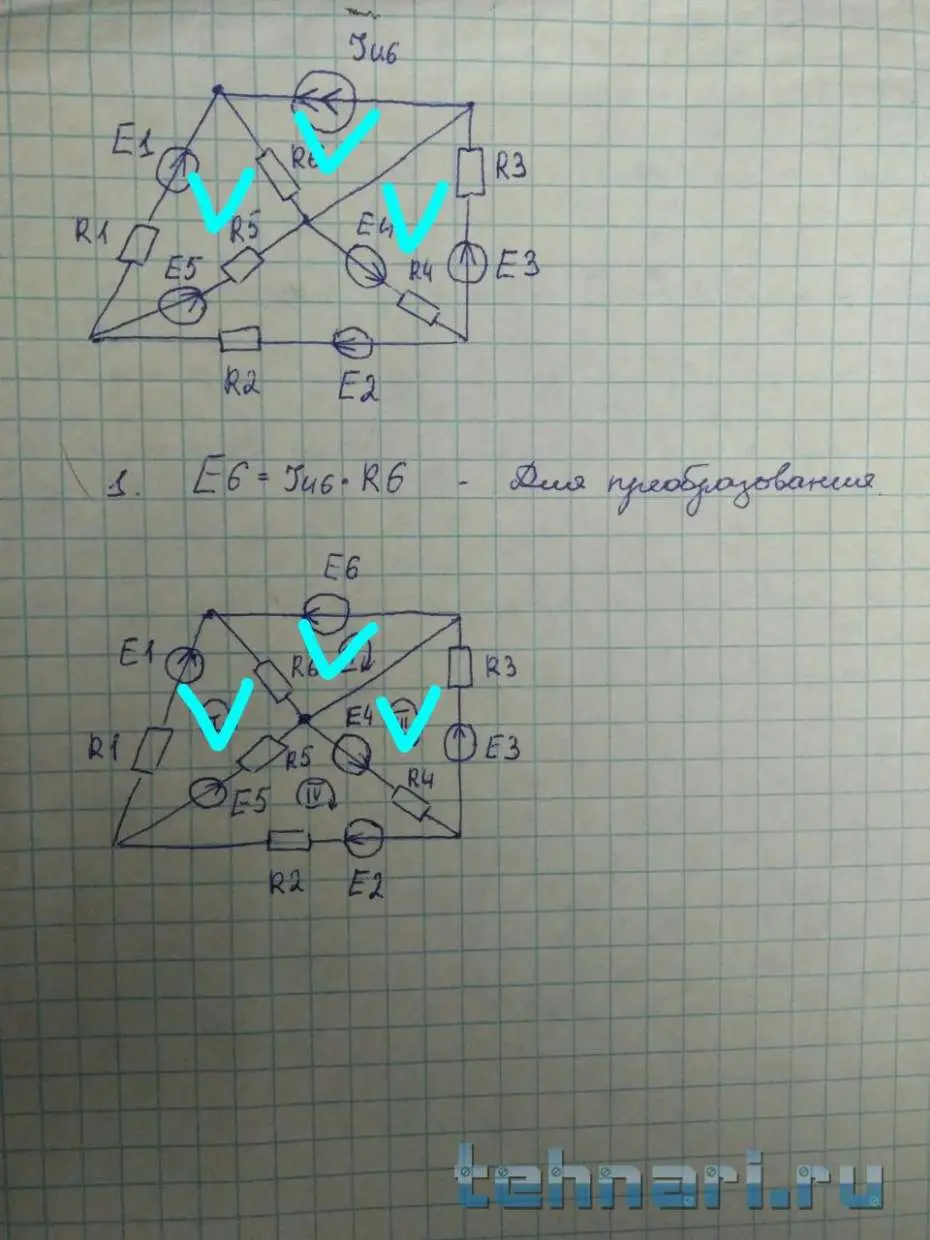 Jи6
E1
R6
R3
R1
R5
E4
E5
R4
E3
R2
E2
1. E6 = Jи6 · R6 - Для преобразования
E6
E1
R6
R3
E4
II
R1
R5
E3
E5
IV
R4
R2
E2
tehnari.ru